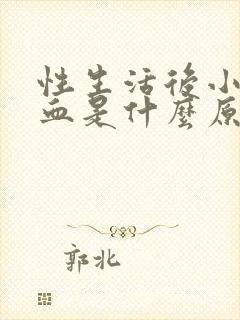 性生活後小
血是什麼原
郭北